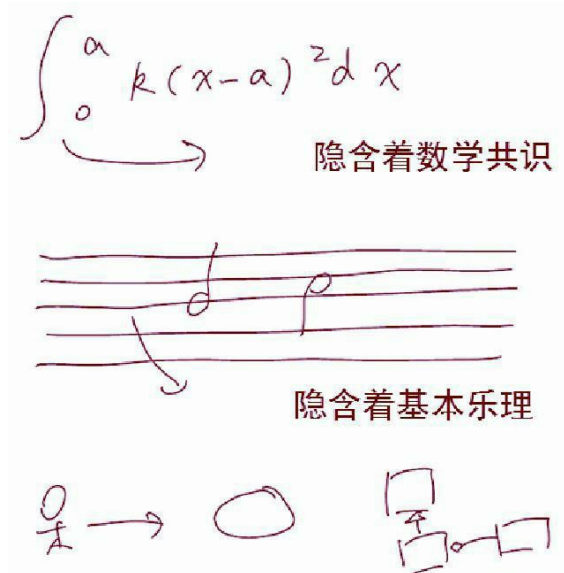 ∫₀ᵃ k(x-a)²dx
隐含着数学共识
隐含着基本乐理